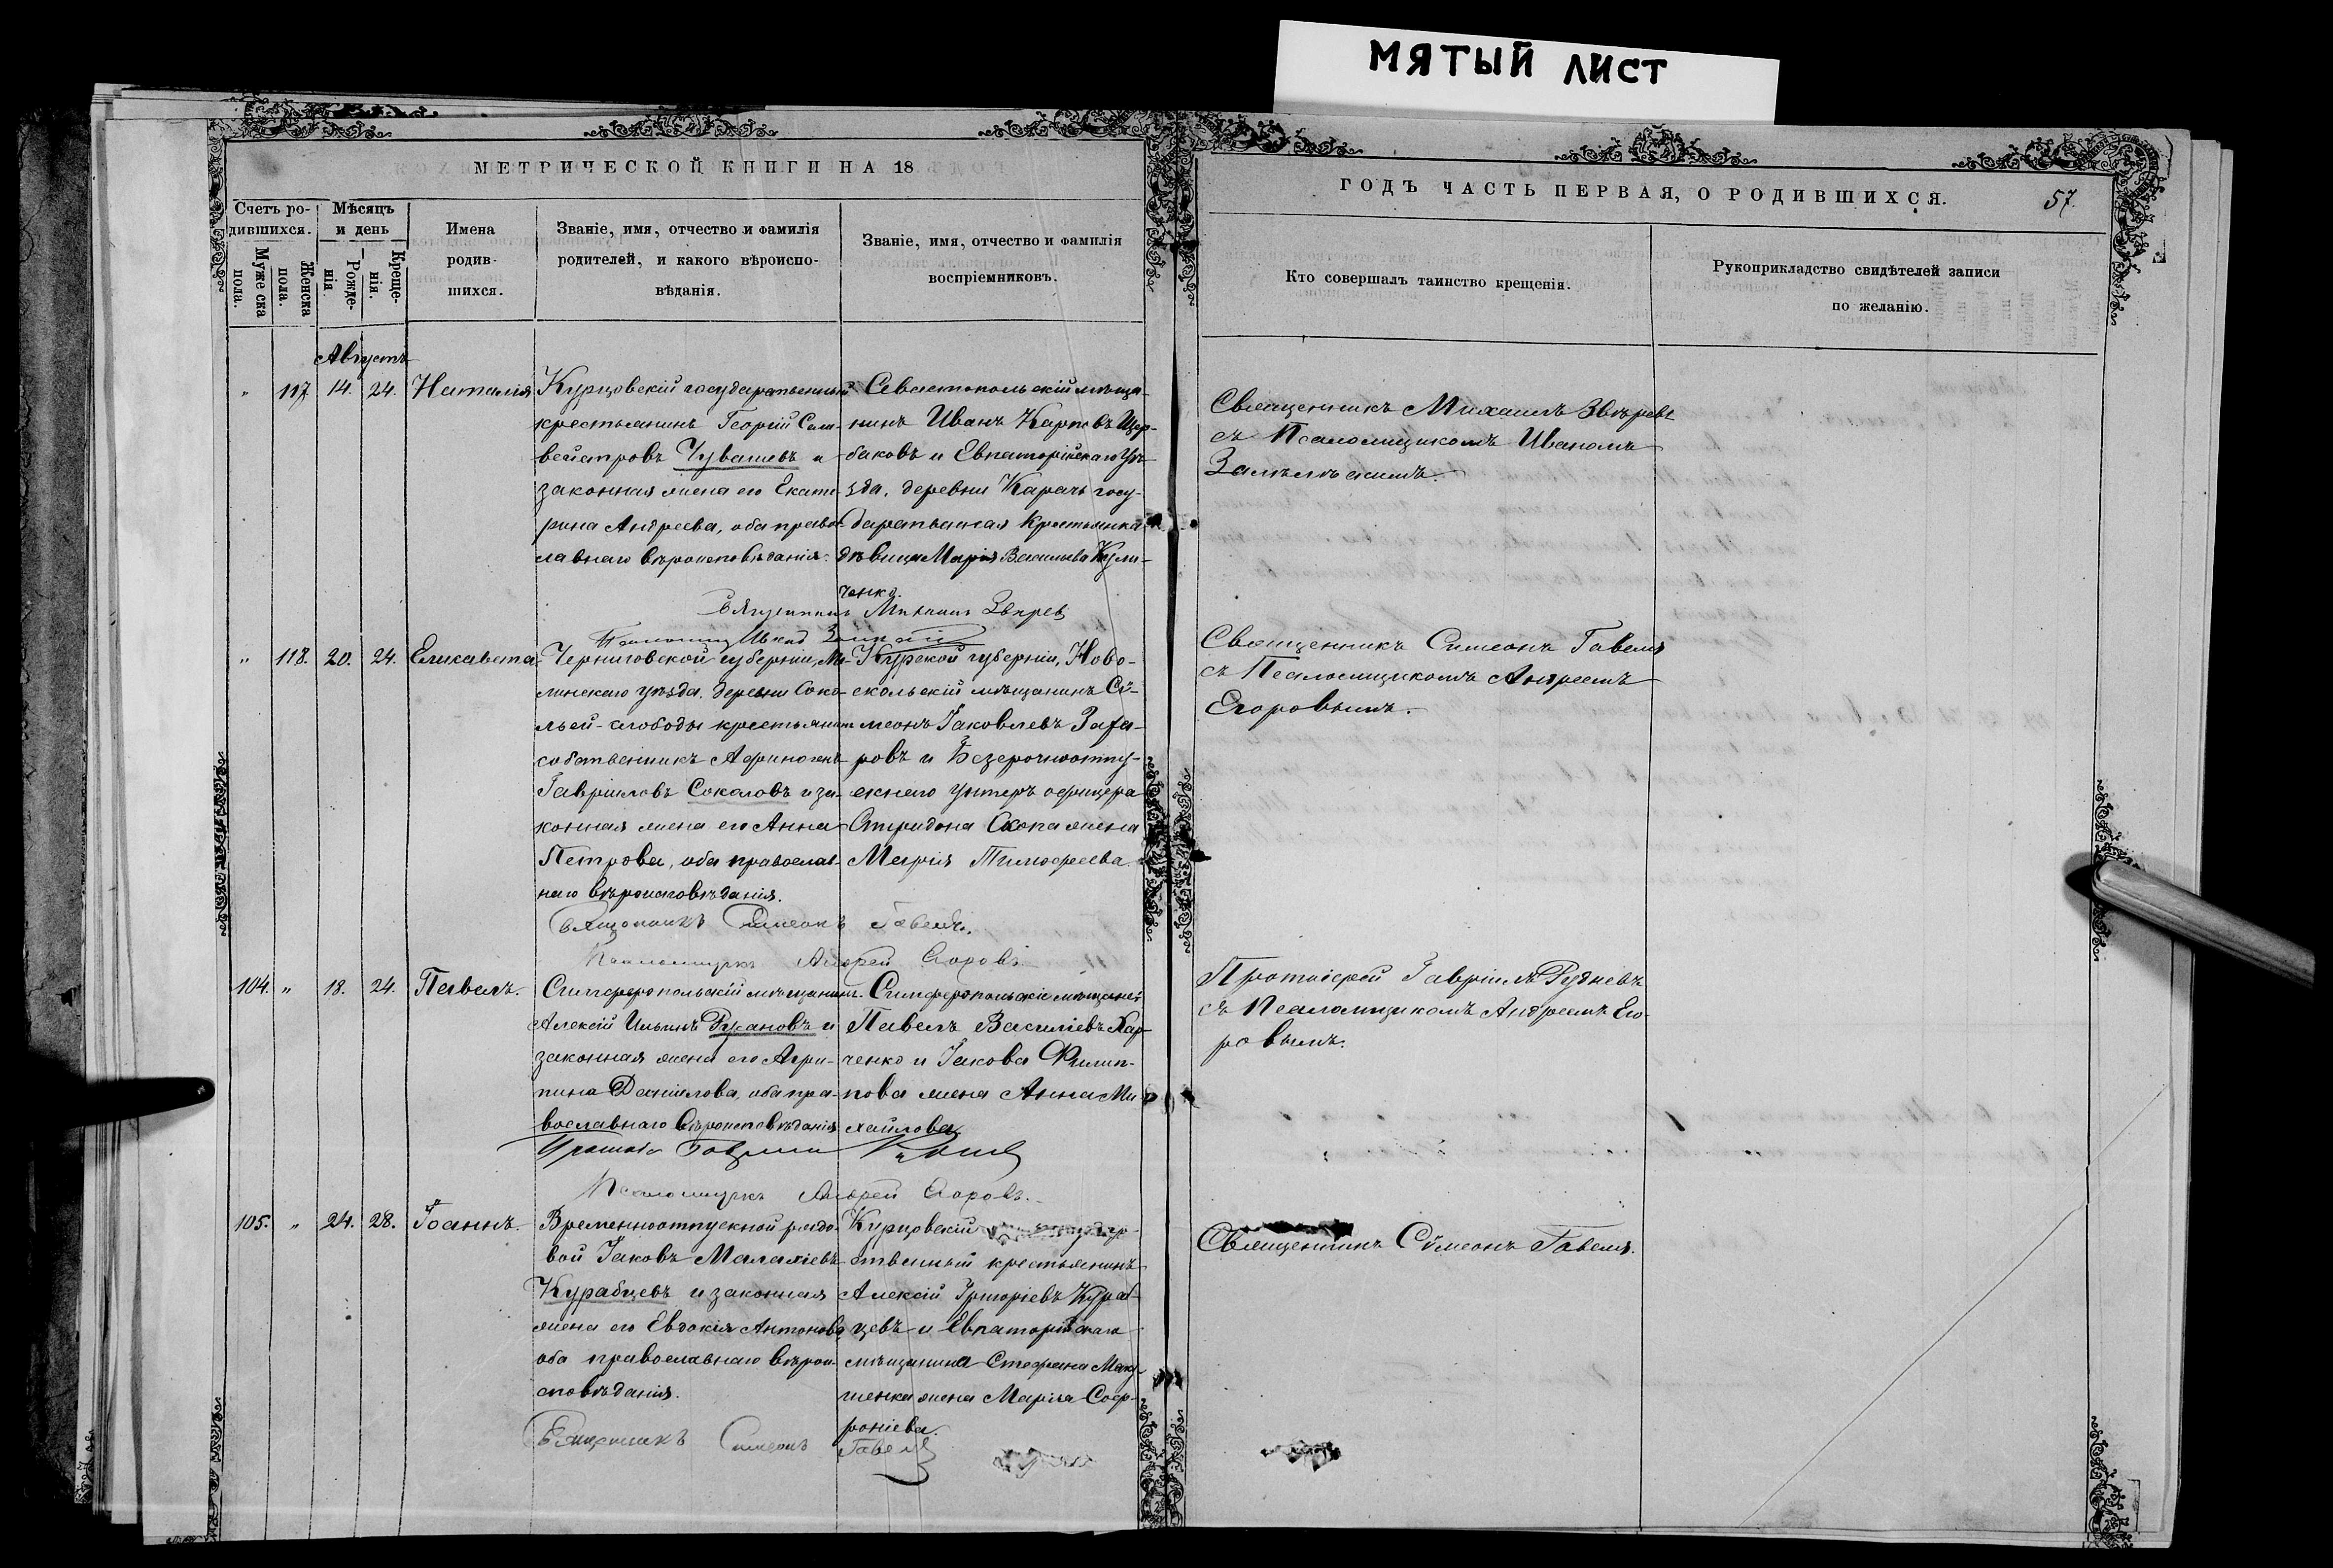 МЯТЫЙ ЛИСТ
МЕТРИЧЕСКОЙ КНИГИ НА 18
ГОДЪ ЧАСТЬ ПЕРВАЯ, О РОДИВШИХСЯ.
57.
Счетъ ро-
дившихся.
Мужеска
пола.
Женска
пола.
Мѣсяцъ
и день
Рожде-
нія
Креще-
нія.
Имена
родив-
шихся.
Званіе, имя, отчество и фамилія
родителей, и какого вѣроиспо-
вѣданія.
Званіе, имя, отчество и фамилія
воспріемниковъ.
Кто совершалъ таинство крещенія.
Рукоприкладство свидѣтелей записи
по желанію.
Августъ
" 117. 14. 24. Наталія
Курцовскій государственный
крестьянинъ Георгій Сели-
вейстровъ Чувашевъ и
законная жена его Екате-
рина Андреева, оба право-
славнаго вѣроисповѣданія.
Севастопольскій мѣща-
нинъ Иванъ Карповъ Щер-
баковъ и Евпаторійскаго уѣ-
зда, деревни Карачь госу-
дарственная крестьянка
дѣвица Марія Васильева Кули-
ченко.
Священникъ Михаилъ Звѣревъ
съ Псаломщикомъ Иваномъ
Священникъ Михаилъ Звѣревъ
" 118. 20. 24. Елисавета
Черниговской губерніи, Мг-
линскаго уѣзда, деревни Соко-
льей-слободы крестьянинъ
собственникъ Афиногенъ
Гавріиловъ Соколовъ и за-
конная жена его Анна
Петрова, оба православ-
наго вѣроисповѣданія.
Курской губерніи, Ново-
скольскій мѣщанинъ Сѵ-
меонъ Іаковлевъ Заха-
ровъ и Безсрочноотпу-
скнаго унтеръ офицера
Спиридона Скопа жена
Марія Тимофеева.
Священникъ Симеонъ Гавеля
съ Псаломщикомъ Андреемъ
Егоровымъ.
Священникъ Симеонъ Гавеля.
Псаломщикъ Андрей Егоровъ
104. " 18. 24. Павелъ.
Симферопольскій мѣщанинъ
Алексій Ильинъ Русановъ и
законная жена его Агри-
пина Даніилова, оба пра-
вославнаго вѣроисповѣданія
Симферопольскіе мѣщане
Павелъ Василіевъ Хар-
ченко и Іакова Филип-
пова жена Анна Ми-
хайлова
Протоіерей Гавріилъ Рудневъ
съ Псаломщикомъ Андреемъ Его-
ровымъ.
Псаломщикъ Андрей Егоровъ.
105. " 24. 28. Іоаннъ.
Временноотпускной рядо-
вой Іаковъ Малахіевъ
Курабцевъ и законная
жена его Евдокія Антонова
оба православнаго вѣрои-
сповѣданія.
Курцовскій государ-
ственный крестьянинъ
Алексій Григоріевъ Кураб-
цевъ и Евпаторійскаго
мѣщанина Стефана Мак-
шенка жена Марія Соф-
роніева.
Священникъ Сѵмеонъ Гавеля.
Священникъ Симеонъ Гавеля